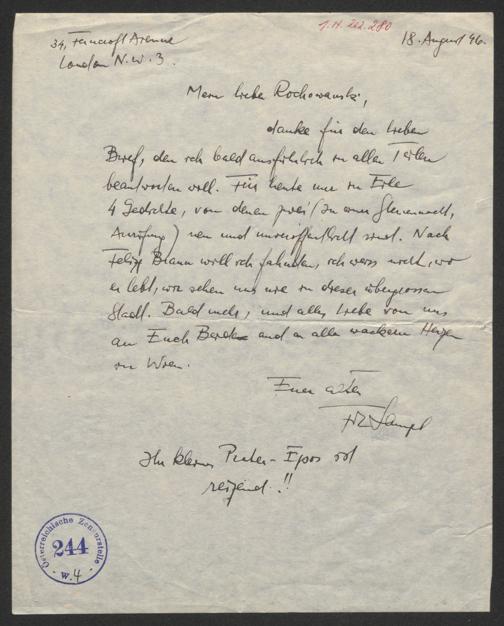 1.N. 222.280
34, Ferncroft Avenue
18. August 46.
London N.W. 3.
Mein lieber Rochowanski,
danke für den lieben
Brief, den ich bald ausführlich in allen Teilen
beantworten will. Für heute nur in Eile
4 Gedichte, von denen zwei (In einer Sternennacht,
Anrufung) neu und unveröffentlicht sind. Nach
Felix Braun will ich fahnden, ich weiss nicht, wo
er lebt, wir sehen uns nie in dieser übergrossen
Stadt. Bald mehr, und alles Liebe von uns
an Euch Beide und an alle wackern Herzen
in Wien.
Euer alter
FLampl
Ihr kleines Epos ist
reizend!!
Österreichische Zensurstelle
244
W.4